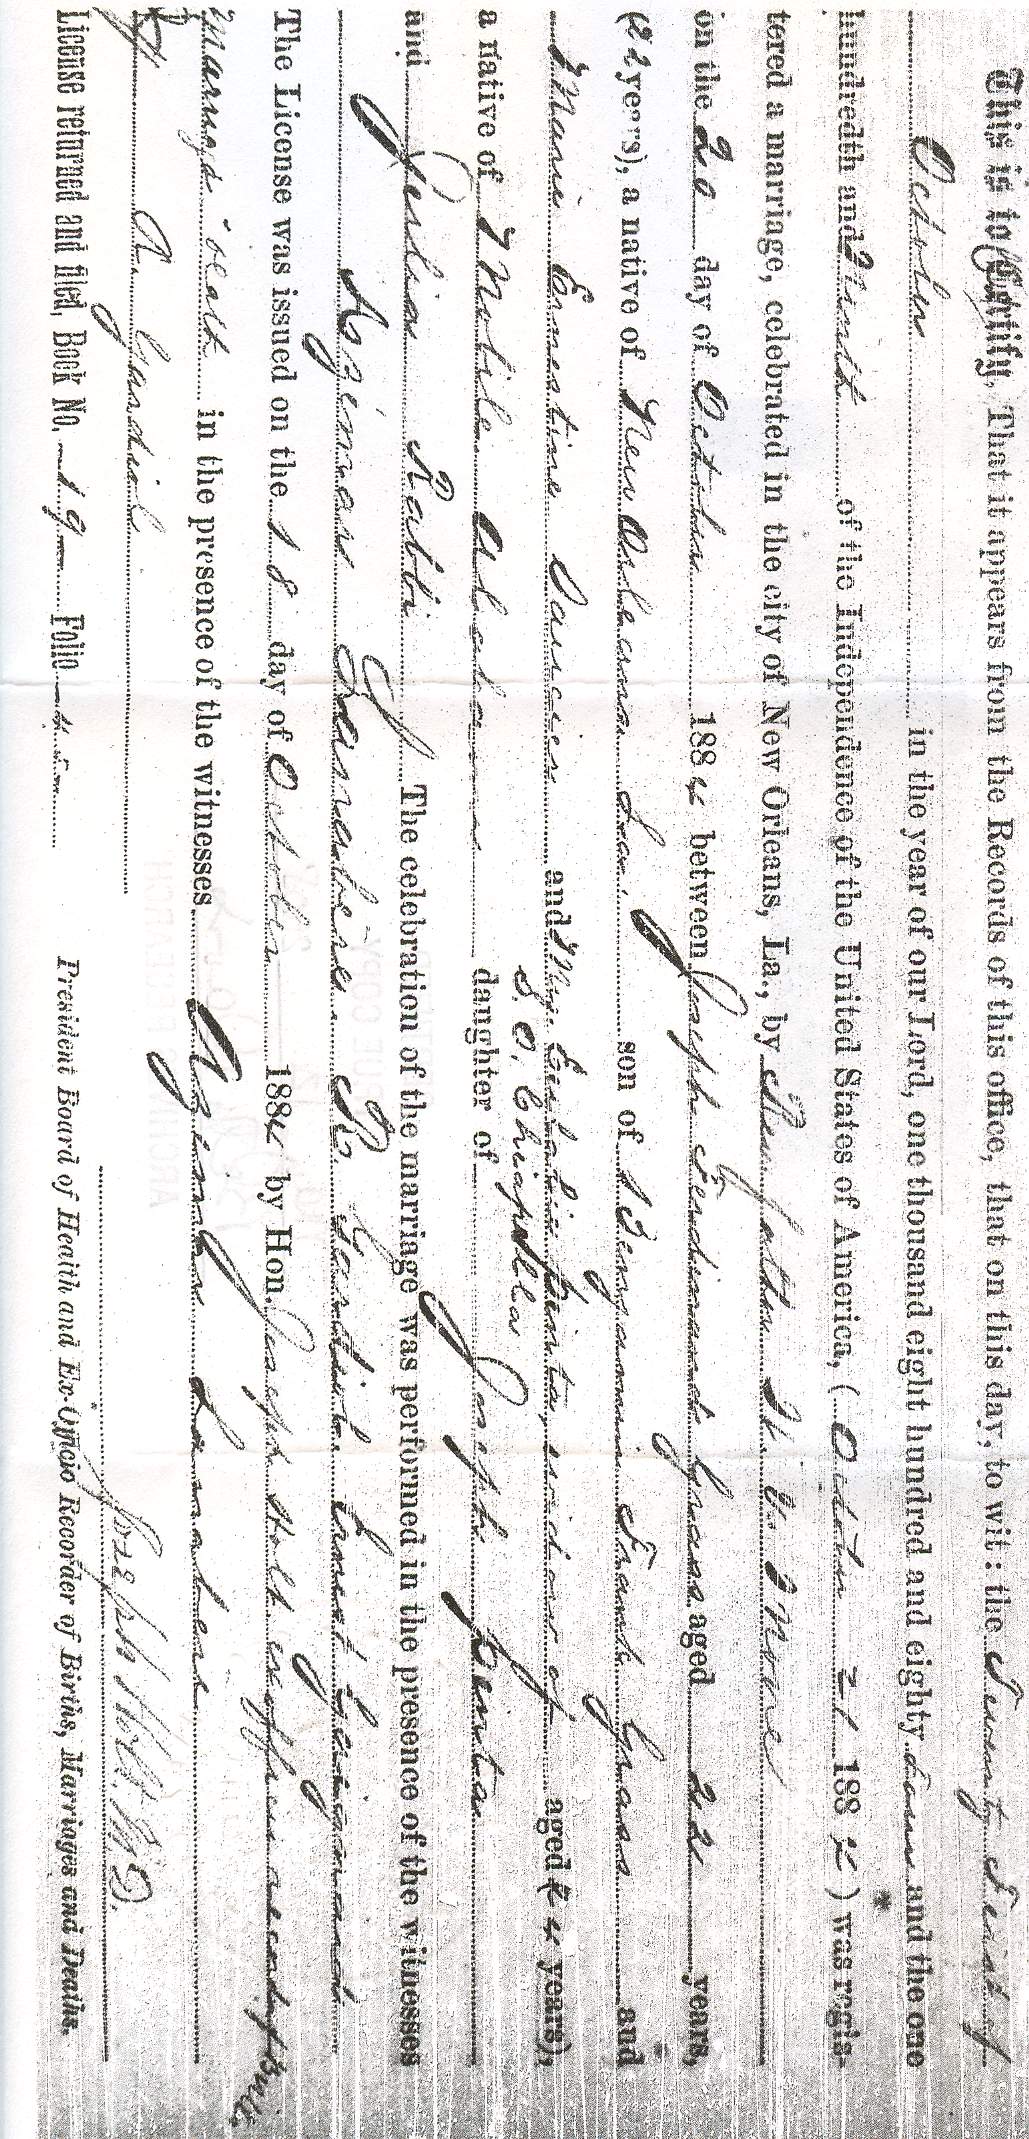 This is to Certify, That it appears from the Records of this office, that on this day, to wit: the Twenty First of
October in the year of our Lord, one thousand eight hundred and eighty four and the one
hundredth and Ninth of the Independence of the United States of America, (October 21 1884) was regis-
tered a marriage, celebrated in the city of New Orleans, La., by Rev. father H. C. Moore
on the 20 day of October 1884 between Joseph Ferdinand Grass aged 22 years,
(22 years), a native of New Orleans La. son of Benjamin Frank Grass and
Marie Ernestine and Mrs. Eulalie Pinta, widow of aged (24 years),
S. O. Chiapella
a native of Mobile Alabama daughter of Joseph Pinta
and Julia Rabbi The celebration of the marriage was performed in the presence of the witnesses
R. Ernest
The License was issued on the 18 day of October 1884 by Hon. Joseph Holt
marriage in the presence of the witnesses
R.
Joseph Holt, M.D.
License returned and filed, Book No. 19 Folio President Board of Health and Ex-Officio Recorder of Births, Marriages and Deaths.